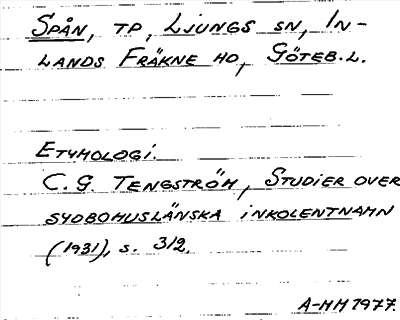 SPÅN, TP, LJUNGS SN, IN-
LANDS FRÄKNE HD, GÖTEB.L.
ETYMOLOGI.
C. G. TENGSTRÖM, STUDIER ÖVER
SYDBOHUSLÄNSKA INKOLENTNAMN
(1931), S. 312.
A-MH 1977.